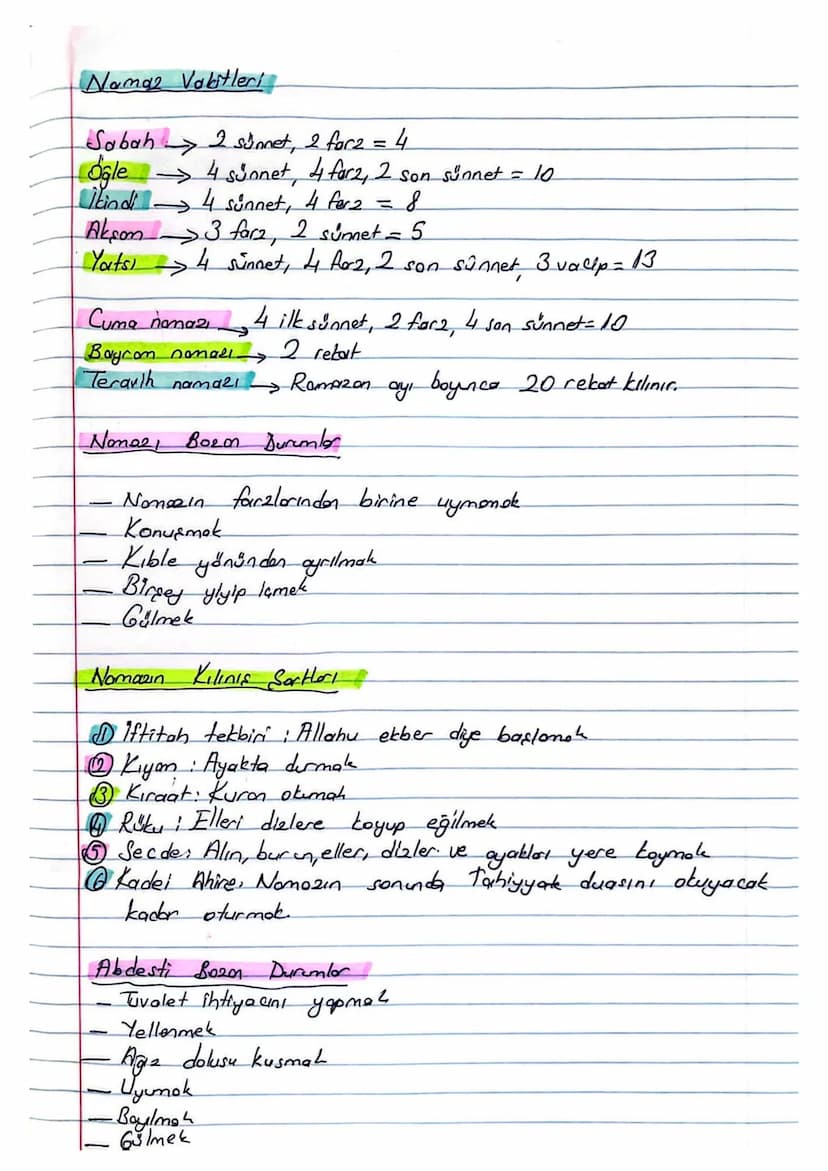 Namaz Vakitleri
Sabah → 2 sünnet, 2 farz = 4
Öğle → 4 sünnet, 4 farz, 2 son sünnet = 10
İkindi → 4 sünnet, 4 farz = 8
Akşam → 3 farz, 2 sünnet = 5
Yatsı → 4 sünnet, 4 farz, 2 son sünnet, 3 vacip = 13
Cuma namazı → 4 ilk sünnet, 2 farz, 4 son sünnet = 10
Bayram namazı → 2 rekat
Teravih namazı → Ramazan ayı boyunca 20 rekat kılınır.
Namazı Bozan Durumlar
— Namazın farzlarından birine uymamak
— Konuşmak
— Kıble yönünden ayrılmak
— Birşey yiyip içmek
— Gülmek
Namazın Kılınış Şartları
1 İftitah tekbiri : Allahu ekber diye başlamak
2 Kıyam : Ayakta durmak
3 Kıraat : Kuran okumak
4 Rüku : Elleri dizlere koyup eğilmek
5 Secde : Alın, burun, eller, dizler ve ayakları yere koymak
6 Kadei Ahire : Namazın sonunda Tahiyyak duasını okuyacak
kadar oturmak.
Abdesti Bozan Durumlar
— Tuvalet ihtiyacını yapmak
— Yellenmek
— Ağız dolusu kusmak
— Uyumak
— Bayılmak
— Gülmek